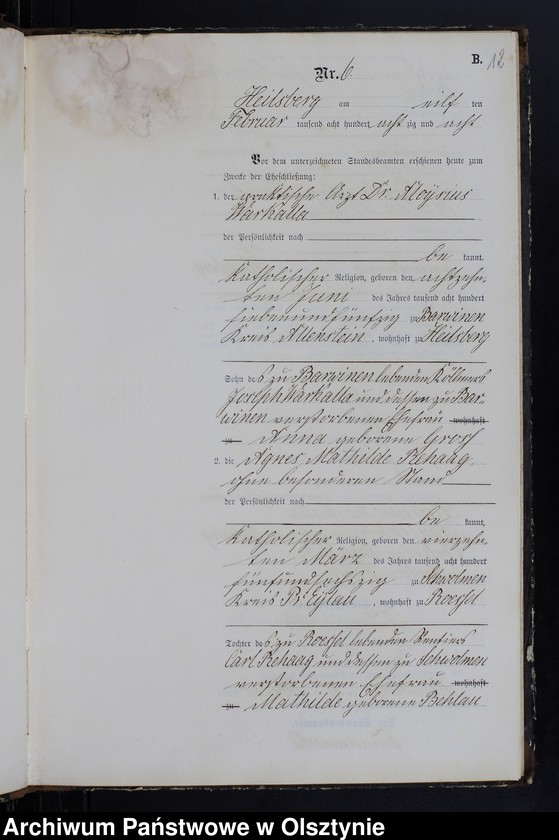 B. 12
Nr. 6.
Heilsberg am eilf ten
Februar tausend acht hundert acht zig und acht
Vor dem unterzeichneten Standesbeamten erschienen heute zum
Zwecke der Eheschließung:
1. der praktische Arzt Dr. Aloysius
Warkalla
der Persönlichkeit nach
be kannt,
katholischer Religion, geboren den achtzehn-
ten Juni des Jahres tausend acht hundert
siebenundfünfzig zu Barwinen
Kreis Allenstein, wohnhaft zu Heilsberg
Sohn des zu Barwinen lebenden Köllmers
Joseph Warkalla und dessen zu Bar-
winen verstorbenen Ehefrau wohnhaft
zu Anna geborene Grosz
2. die Agnes Mathilde Rehaag,
ohne besonderen Stand
der Persönlichkeit nach
be kannt,
katholischer Religion, geboren den vierzehn-
ten März des Jahres tausend acht hundert
fünfundsechszig zu Schwolmen
Kreis Pr. Eylau, wohnhaft zu Roessel
Tochter des zu Roessel lebenden Rentiers
Carl Rehaag und dessen zu Schwolmen
verstorbenen Ehefrau wohnhaft
zu Mathilde geborene Behlau
Archiwum Państwowe w Olsztynie